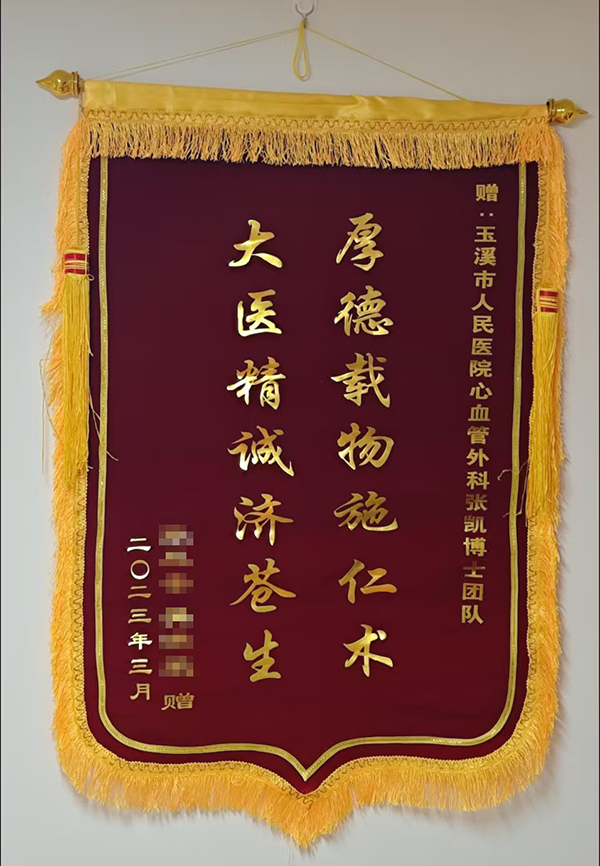 赠：玉溪市人民医院心血管外科张凯博士团队
厚德载物施仁术
大医精诚济苍生
赠
二〇二三年三月